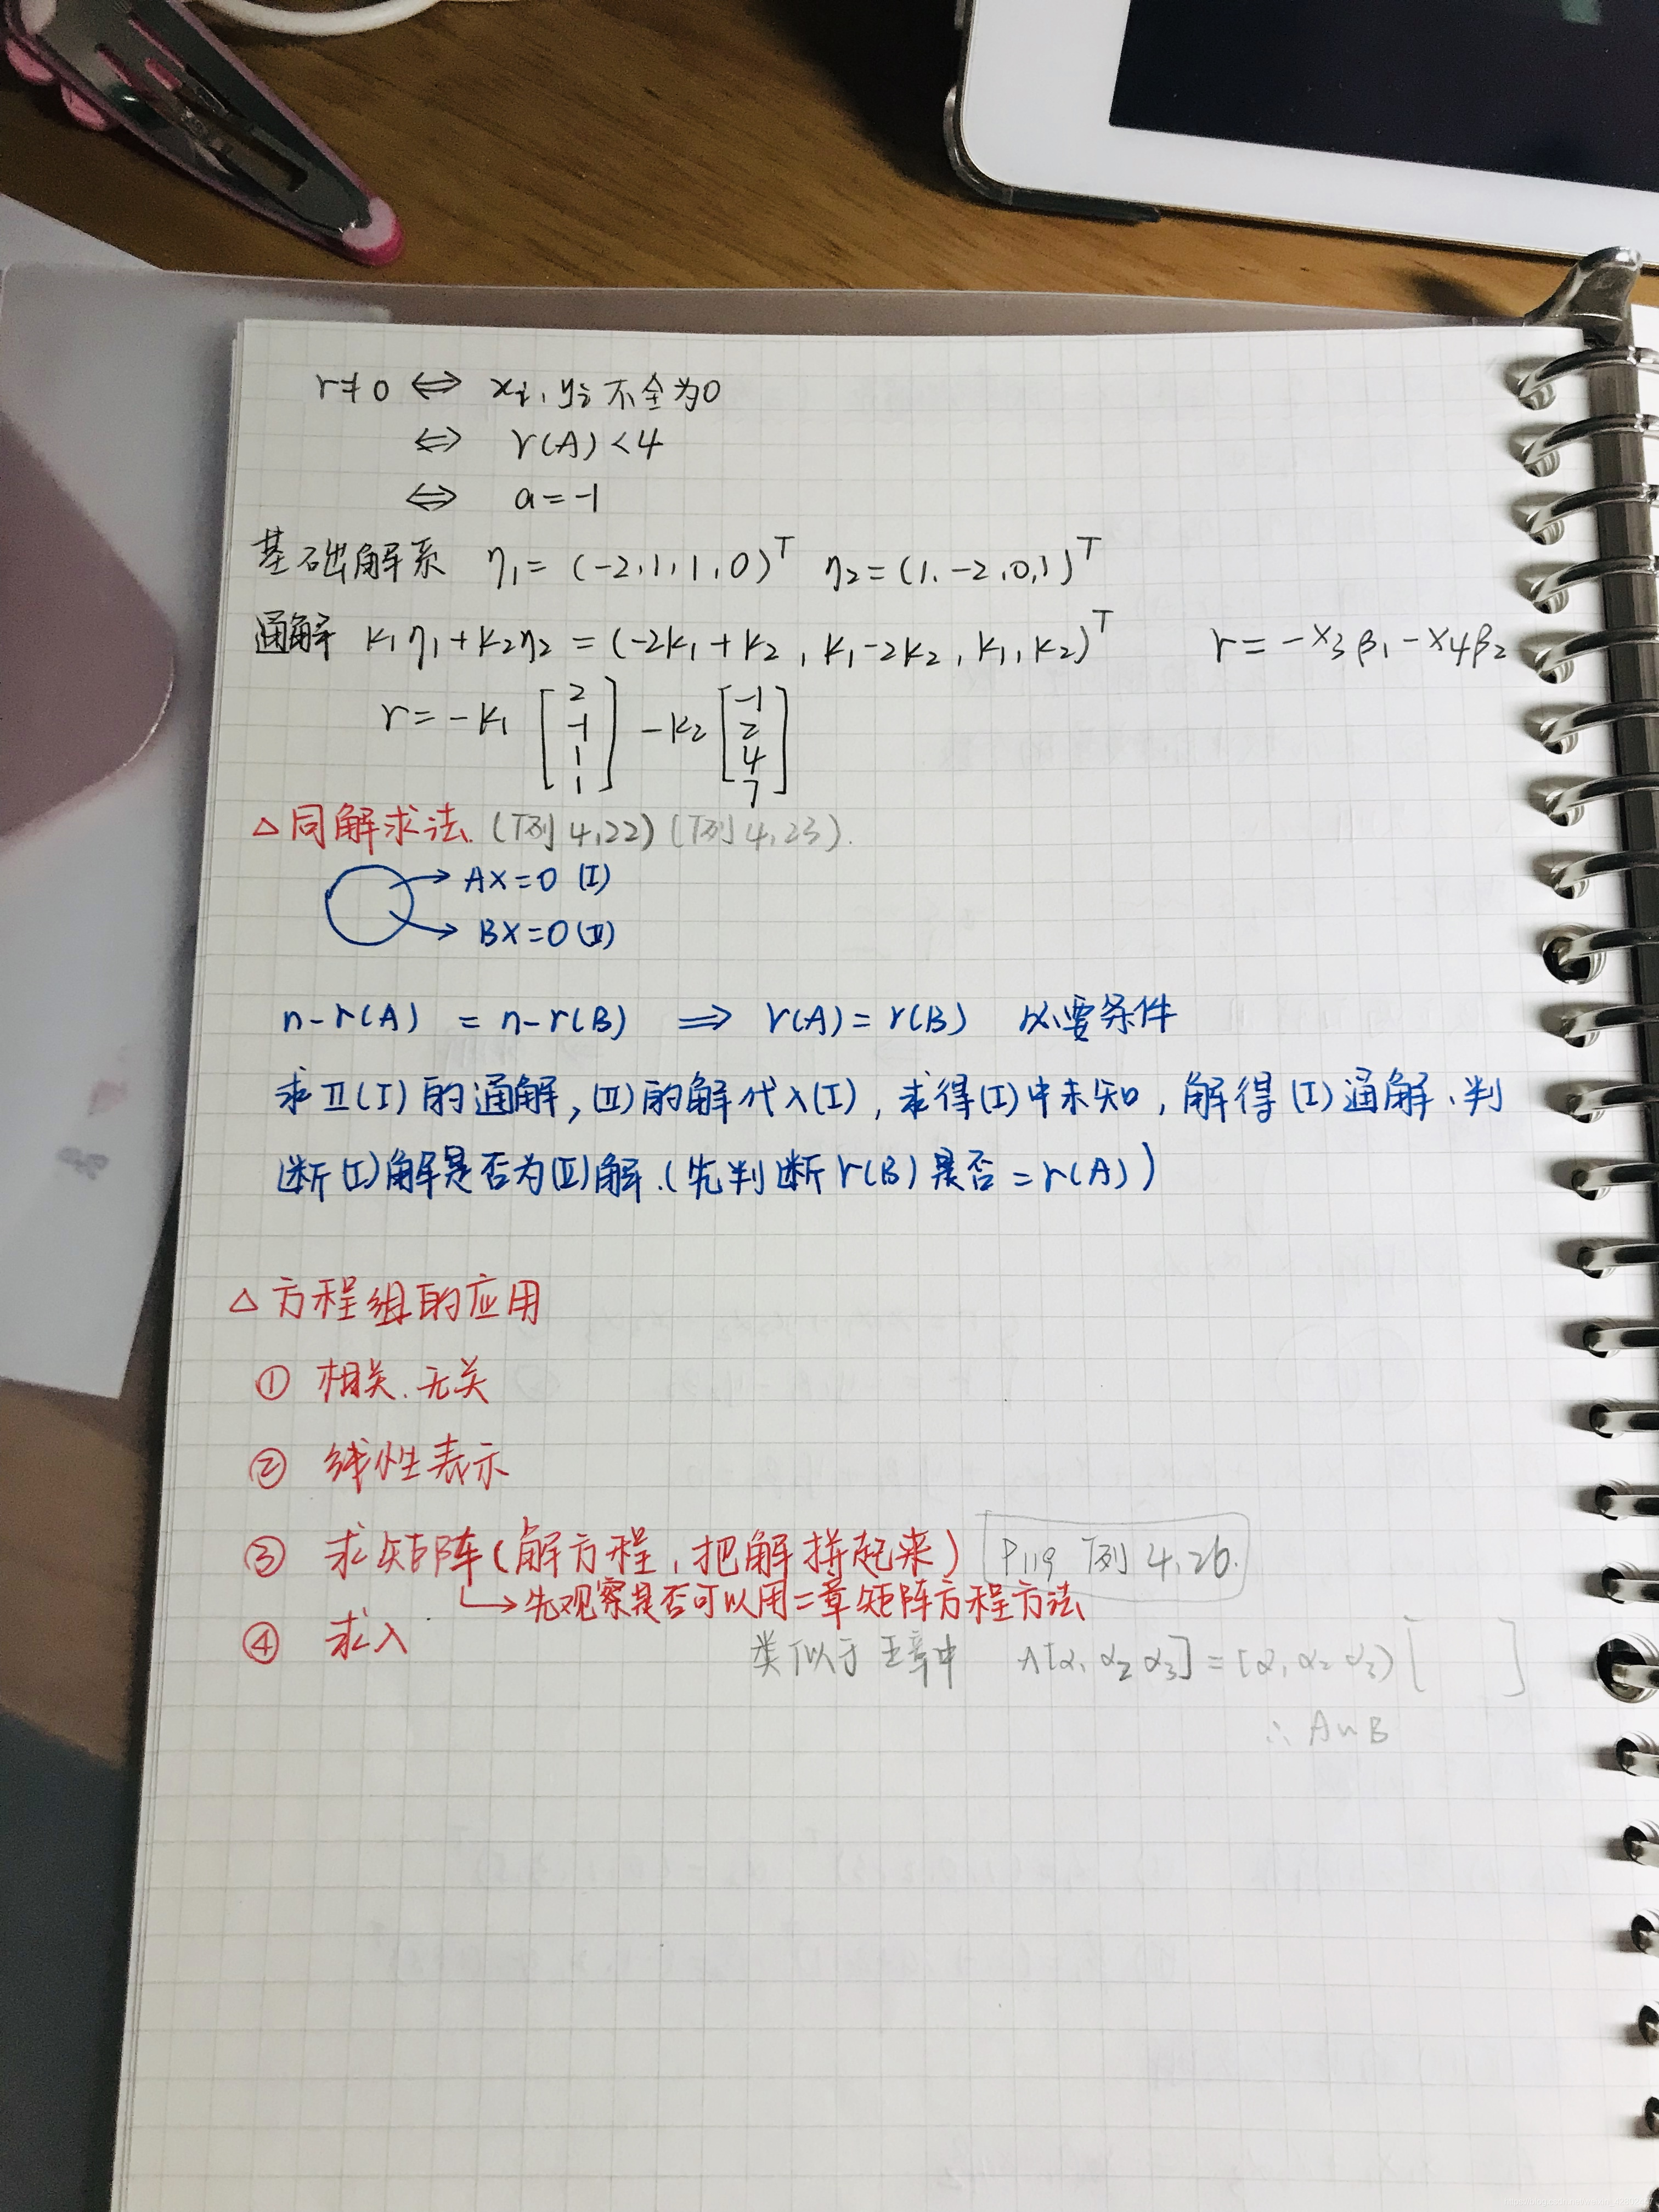 r≠0 ⇔ xi, yi 不全为0
⇔ r(A)<4
⇔ a=-1
基础解系 η1=(-2,1,1,0)^T η2=(1,-2,0,1)^T
通解 k1η1+k2η2=(-2k1+k2, k1-2k2, k1, k2)^T r=-x3β1-x4β2
r=-k1 [2 -1 1 1] -k2 [-1 2 4 7]
△同解求法 (例4.22) (例4.23).
→ AX=0 (I)
→ BX=0 (II)
n-r(A) = n-r(B) ⇒ r(A)=r(B) 必要条件
求II(I)的通解,(II)的解代入(I),求得(I)中未知,解得(I)通解、判
断(I)解是否为(II)解.(先判断r(B)是否=r(A))
△方程组的应用
① 相关、无关
② 线性表示
③ 求矩阵(解方程,把解拼起来) P119 例4.26.
↳先观察是否可以用二章矩阵方程方法
④ 求λ
类似于五章中 A[α1 α2 α3]=[α1 α2 α3] [ ]
∴ A∼B